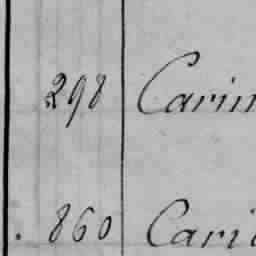 298 Carin
860 Cari